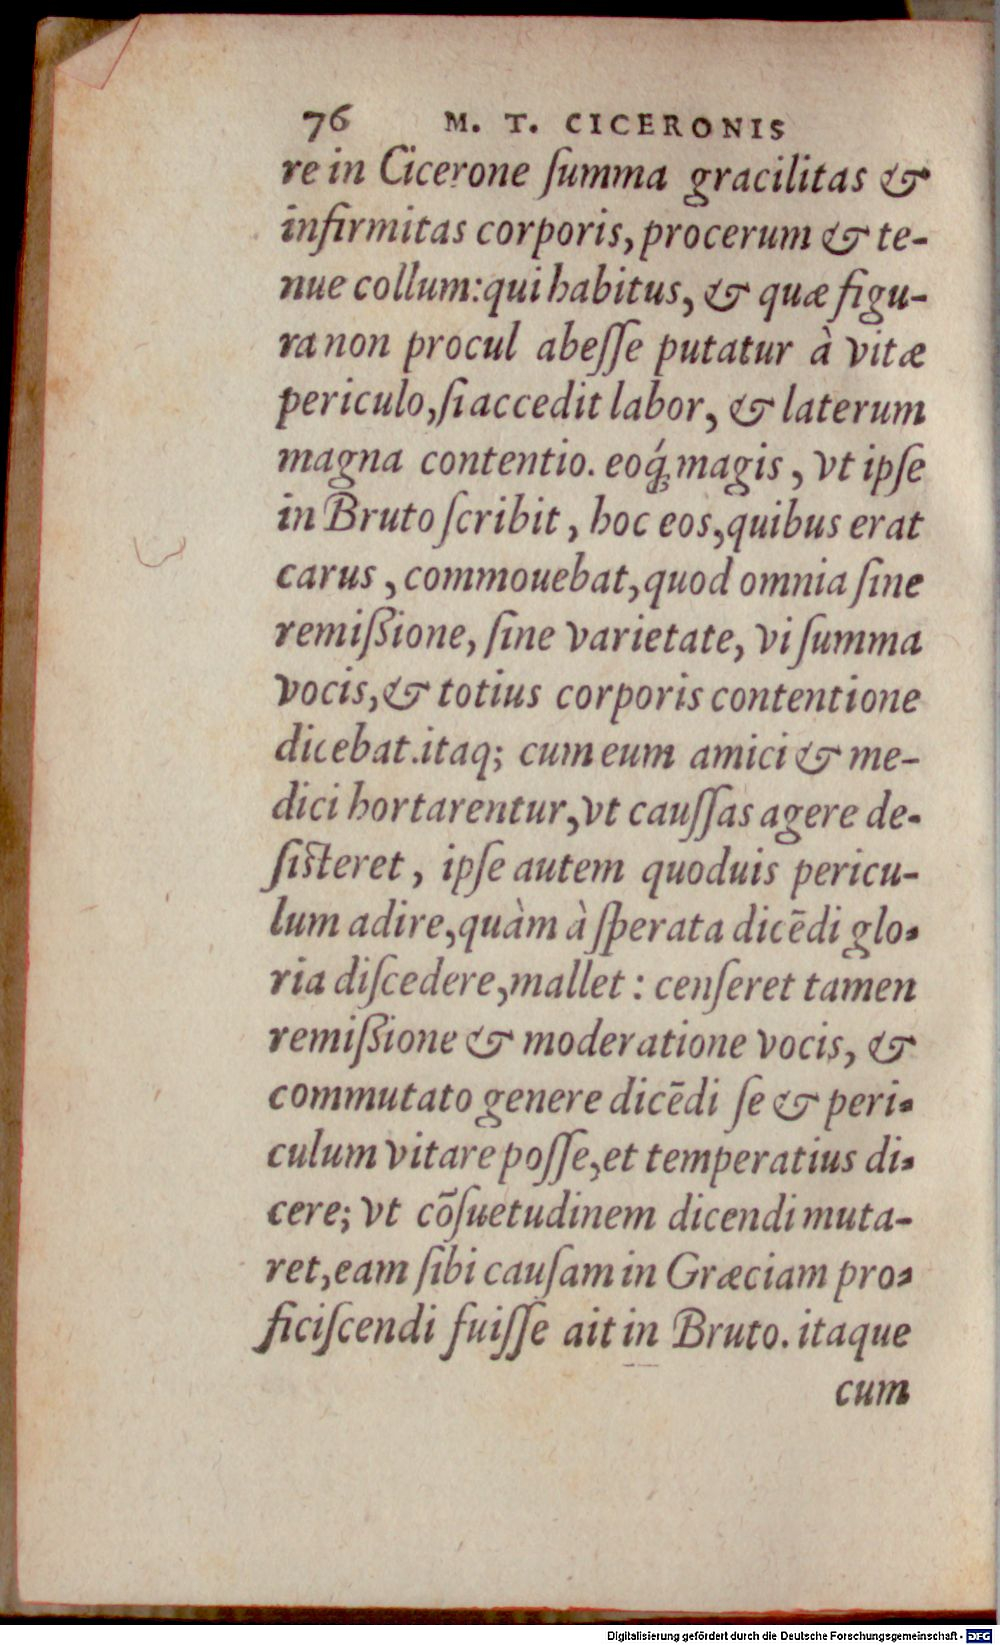 76 M. T. CICERONIS
re in Cicerone ſumma gracilitas &
infirmitas corporis, procerum & te-
nue collum: qui habitus, & quæ figu-
ra non procul abeſſe putatur à vitæ
periculo, ſi accedit labor, & laterum
magna contentio. eoq́; magis, vt ipſe
in Bruto ſcribit, hoc eos, quibus erat
carus, commouebat, quod omnia ſine
remiſsione, ſine varietate, vi ſumma
vocis, & totius corporis contentione
dicebat. itaq; cum eum amici & me-
dici hortarentur, vt cauſſas agere de-
ſiſteret, ipſe autem quoduis pericu-
lum adire, quàm à ſperata dicēdi glo-
ria diſcedere, mallet: cenſeret tamen
remiſsione & moderatione vocis, &
commutato genere dicēdi ſe & peri-
culum vitare poſſe, et temperatius di-
cere; vt cōſuetudinem dicendi muta-
ret, eam ſibi cauſam in Græciam pro-
ficiſcendi fuiſſe ait in Bruto. itaque
cum
Digitalisierung gefördert durch die Deutsche Forschungsgemeinschaft - DFG